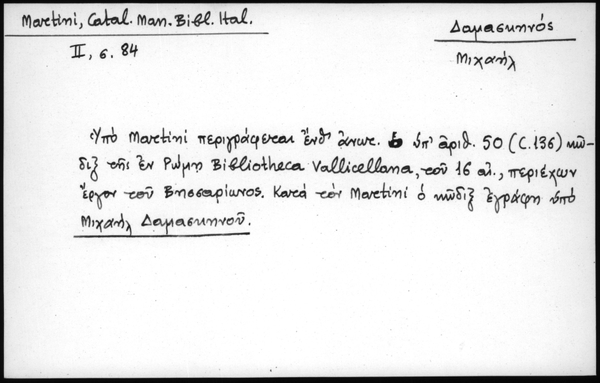 Martini, Catal. Man. Bibl. Ital.
II, σ. 84
Δαμασκηνός
Μιχαήλ
Ὑπὸ Martini περιγράφεται ἔνθ' ἄνωτ. ὁ ὑπ' ἀριθ. 50 (C.136) κῶ-
διξ τῆς ἐν Ρώμῃ Bibliotheca Vallicellana, τοῦ 16 αἰ., περιέχων
ἔργον τοῦ Βησσαρίωνος. Κατὰ τὸν Martini ὁ κῶδιξ ἐγράφη ὑπὸ
Μιχαὴλ Δαμασκηνοῦ.